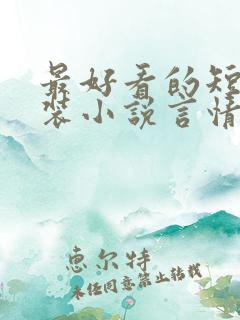 最好看的短
装小说言情
惠尔特
未经同意禁止转载